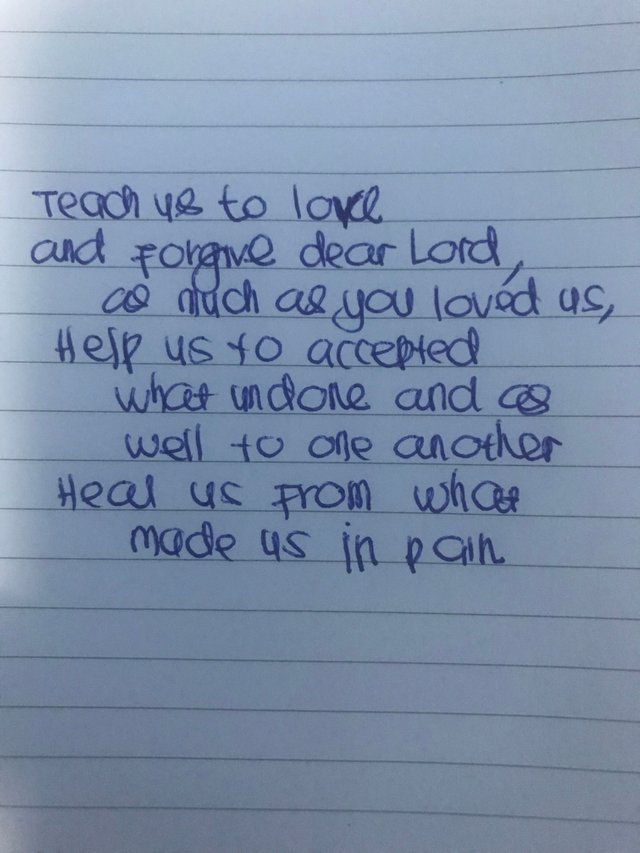 Teach us to love
and Forgive dear Lord,
as much as you loved us,
Help us to accepted
what undone and as
well to one another
Heal us From what
made us in pain